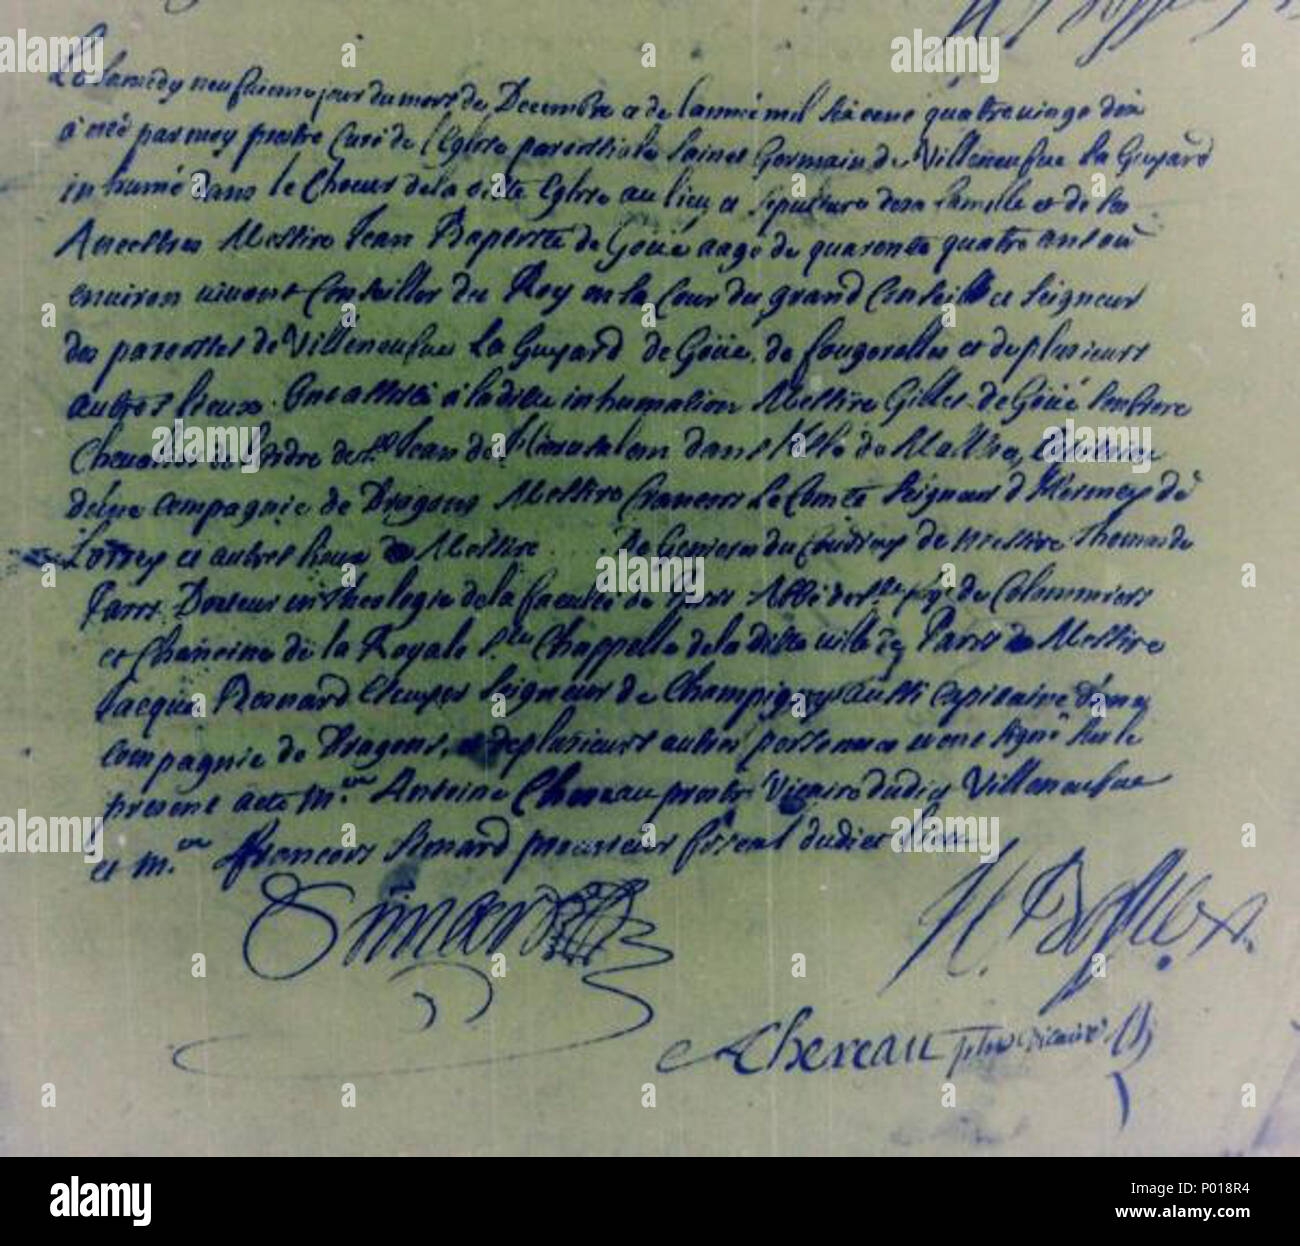 Le Samedy neufvieme jour du mois de Decembre de l'annee mil six cens quatre vingt dix
a été par moy prestre Curé de l'Eglise paroissiale Sainct Germain de Villeneufue La Guyard
inhumé dans le Choeur de la ditte Eglise au lieu et sepulture de sa famille et de ses
Ancestres Messire Jean Baptiste de Goüé aagé de quarente quatre ans ou
enuiron viuant Conseiller du Roy en sa Cour du grand Conseil et Seigneur
des paroisses de Villeneufue La Guyard de Goüé, de fougerolles et de plusieurs
autres lieux. Ont assisté a la ditte inhumation Messire Gilles de Goüé son frere
Cheualier de l'ordre de St Jean de Hierusalem dans de Malthe, Capitaine
d'une compagnie de Dragons Messire Francois Le Comte Seigneur d'Hermey de
Lorrey et autres lieux Messire du Coudray Messire Thomas de
Paris Docteur en theologie de la faculté de Paris Abbé de de Colommiers
et Chanoine de la Royale Ste Chappelle de la ditte ville de Paris Messire
Jacque Bernard Seigneur de Champigny aussi Capitaine d'une
compagnie de Dragons, et de plusieurs autres personnes signé sur le
present acte Antoine Chereau prestre Vicaire dudict Villeneufue
et Francois Simard procureur fiscal dudict lieu
Simard
Chereau vicaire
alamy
Image ID: P018R4
www.alamy.com